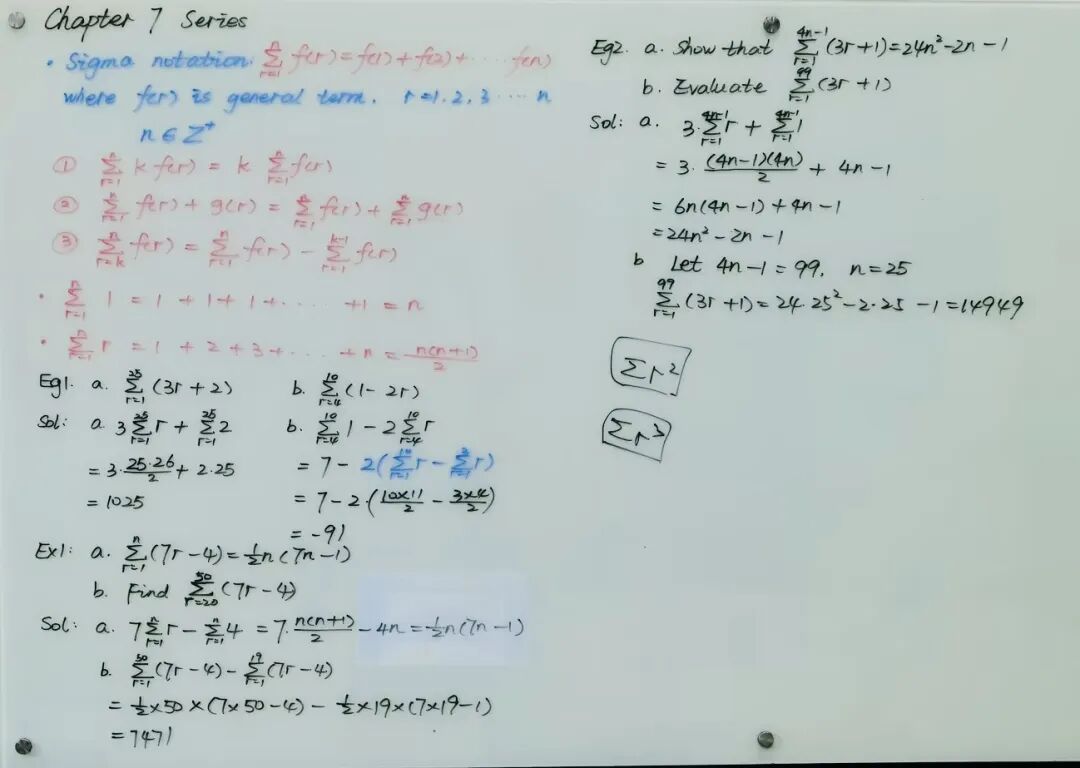 Chapter 7 Series
• Sigma notation: \sum_{r=1}^{n} f(r) = f(1) + f(2) + ····· f(n)
where f(r) is general term. r=1, 2, 3 ····· n
n ∈ Z⁺
① \sum_{r=1}^{n} k f(r) = k \sum_{r=1}^{n} f(r)
② \sum_{r=1}^{n} f(r) + g(r) = \sum_{r=1}^{n} f(r) + \sum_{r=1}^{n} g(r)
③ \sum_{r=k}^{n} f(r) = \sum_{r=1}^{n} f(r) - \sum_{r=1}^{k-1} f(r)
• \sum_{r=1}^{n} 1 = 1 + 1 + 1 + ····· +1 = n
• \sum_{r=1}^{n} r = 1 + 2 + 3 + ····· + n = \frac{n(n+1)}{2}
Eg1. a. \sum_{r=1}^{25} (3r + 2) b. \sum_{r=4}^{10} (1 - 2r)
Sol: a. 3\sum_{r=1}^{25} r + \sum_{r=1}^{25} 2 b. \sum_{r=4}^{10} 1 - 2\sum_{r=4}^{10} r
= 3·\frac{25·26}{2} + 2·25 = 7 - 2(\sum_{r=1}^{10} r - \sum_{r=1}^{3} r)
= 1025 = 7 - 2·(\frac{10×11}{2} - \frac{3×4}{2})
= -91
Ex1: a. \sum_{r=1}^{n} (7r - 4) = ½n(7n - 1)
b. Find \sum_{r=20}^{50} (7r - 4)
Sol: a. 7\sum_{r=1}^{n} r - \sum_{r=1}^{n} 4 = 7·\frac{n(n+1)}{2} - 4n = ½n(7n - 1)
b. \sum_{r=1}^{50} (7r - 4) - \sum_{r=1}^{19} (7r - 4)
= ½×50×(7×50-4) - ½×19×(7×19-1)
= 7471
Eg2. a. Show that \sum_{r=1}^{4n-1} (3r+1) = 24n² - 2n - 1
b. Evaluate \sum_{r=1}^{99} (3r+1)
Sol: a. 3·\sum_{r=1}^{4n-1} r + \sum_{r=1}^{4n-1} 1
= 3·\frac{(4n-1)(4n)}{2} + 4n - 1
= 6n(4n-1) + 4n - 1
= 24n² - 2n - 1
b Let 4n-1 = 99, n=25
\sum_{r=1}^{99} (3r+1) = 24·25² - 2·25 - 1 = 14949
Σr²
Σr³